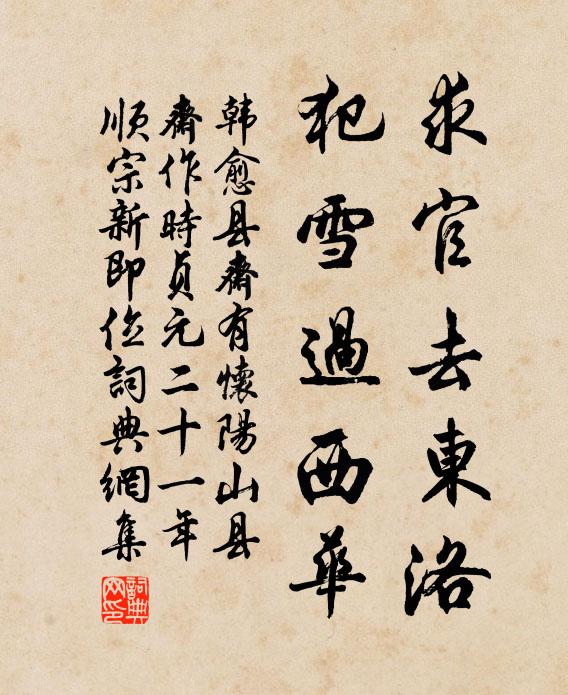 求官去東洛
犯雪過西華
韩愈县齋有懷陽山县
齋作時貞元二十一年
順宗新即位詞典網集
詞典網印